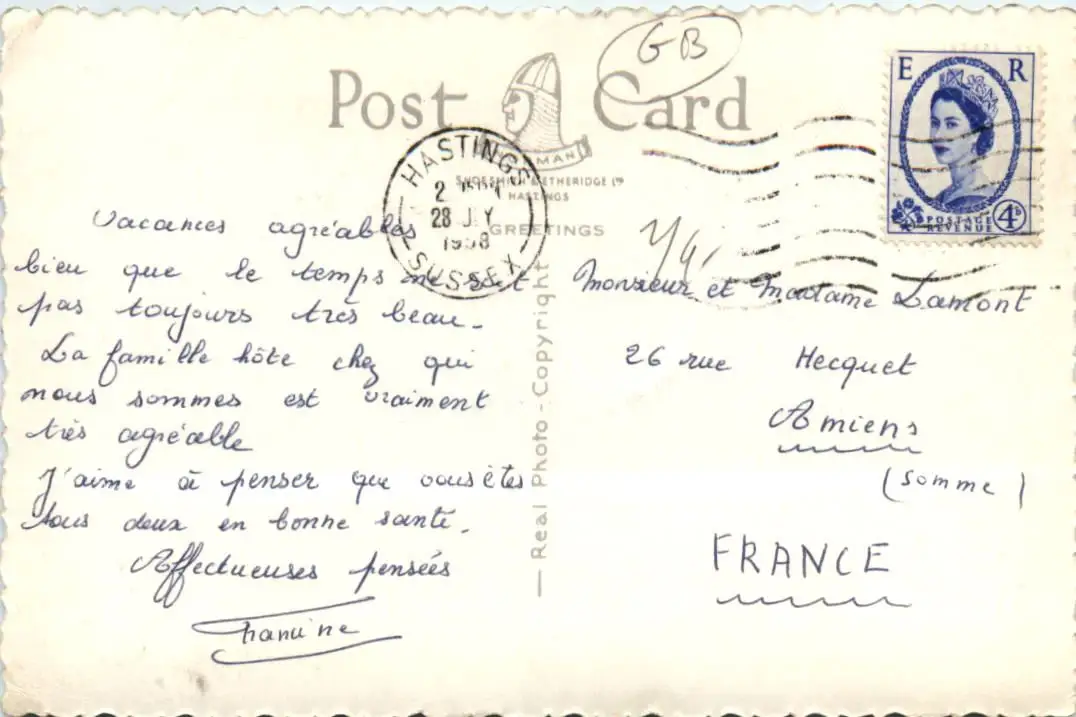 GB
Post Card
E R
HASTINGS
2
28 JLY
1958
SUSSEX
SHOESMITH & ETHERIDGE LTD
HASTINGS
GREETINGS
POSTAGE
REVENUE
4D
Vacances agréables
bien que le temps ne soit
pas toujours très beau.
La famille hôte chez qui
nous sommes est vraiment
très agréable
J'aime à penser que vous êtes
tous deux en bonne santé.
Affectueuses pensées
— Real Photo - Copyright
Monsieur et Madame Lamont
26 rue Hecquet
Amiens
(Somme)
FRANCE